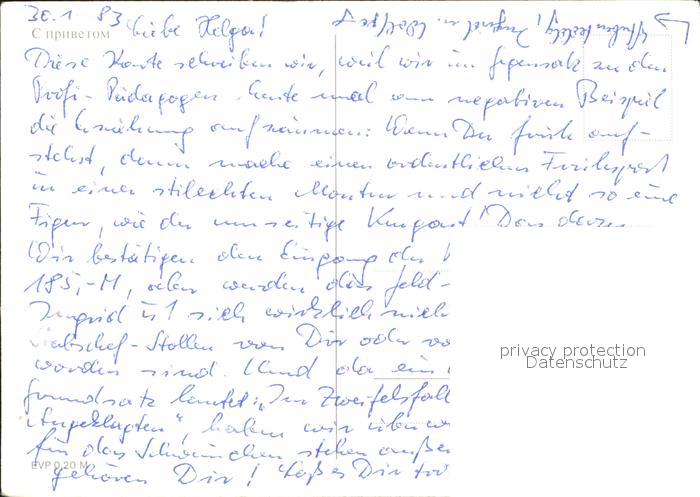 30.1.83 Liebe Helga!
С приветом
Diese Karte schreiben wir, weil wir im Gegensatz zu den
Profi-Pädagogen heute mal am negativen Beispiel
die Erziehung aufzäumen: Wenn Du früh auf-
stehst, dann mache einen ordentlichen Frühsport
in einer stilechten Montur und nicht so eine
Figur, wie der umseitige Kurgast! Den
Wir bestätigen den Eingang der
185,-M, aber werden das Geld
Ingrid ist sich wirklich nich
-Stollen von Dir oder vo
worden sind. Und da ein
Grundsatz lautet: "Im Zweifelsfall
Angeklagten", haben wir
für das Schweinchen stehen auße
EVP 0,20 M
gehören Dir! Laß es Dir
Ingrid u. Wolf
privacy protection
Datenschutz